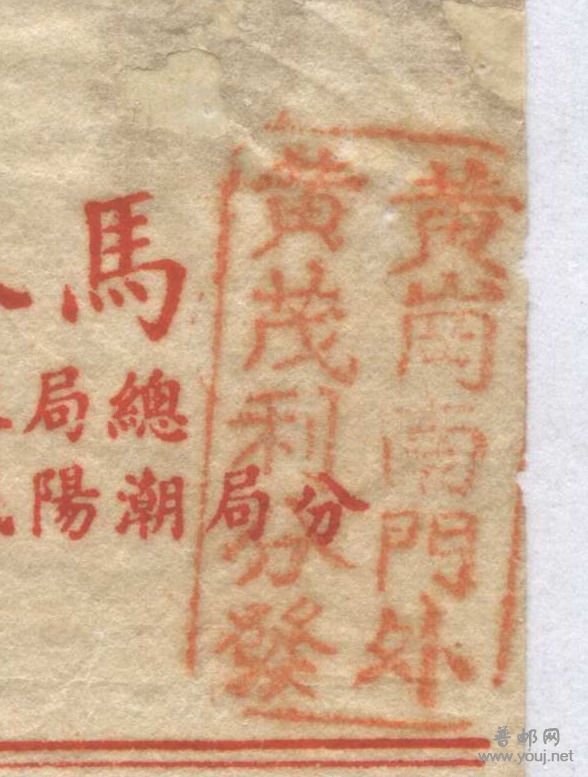 黃崗南門外
黃茂利分發
馬
總局
分局潮陽
普邮网
www.youj.net